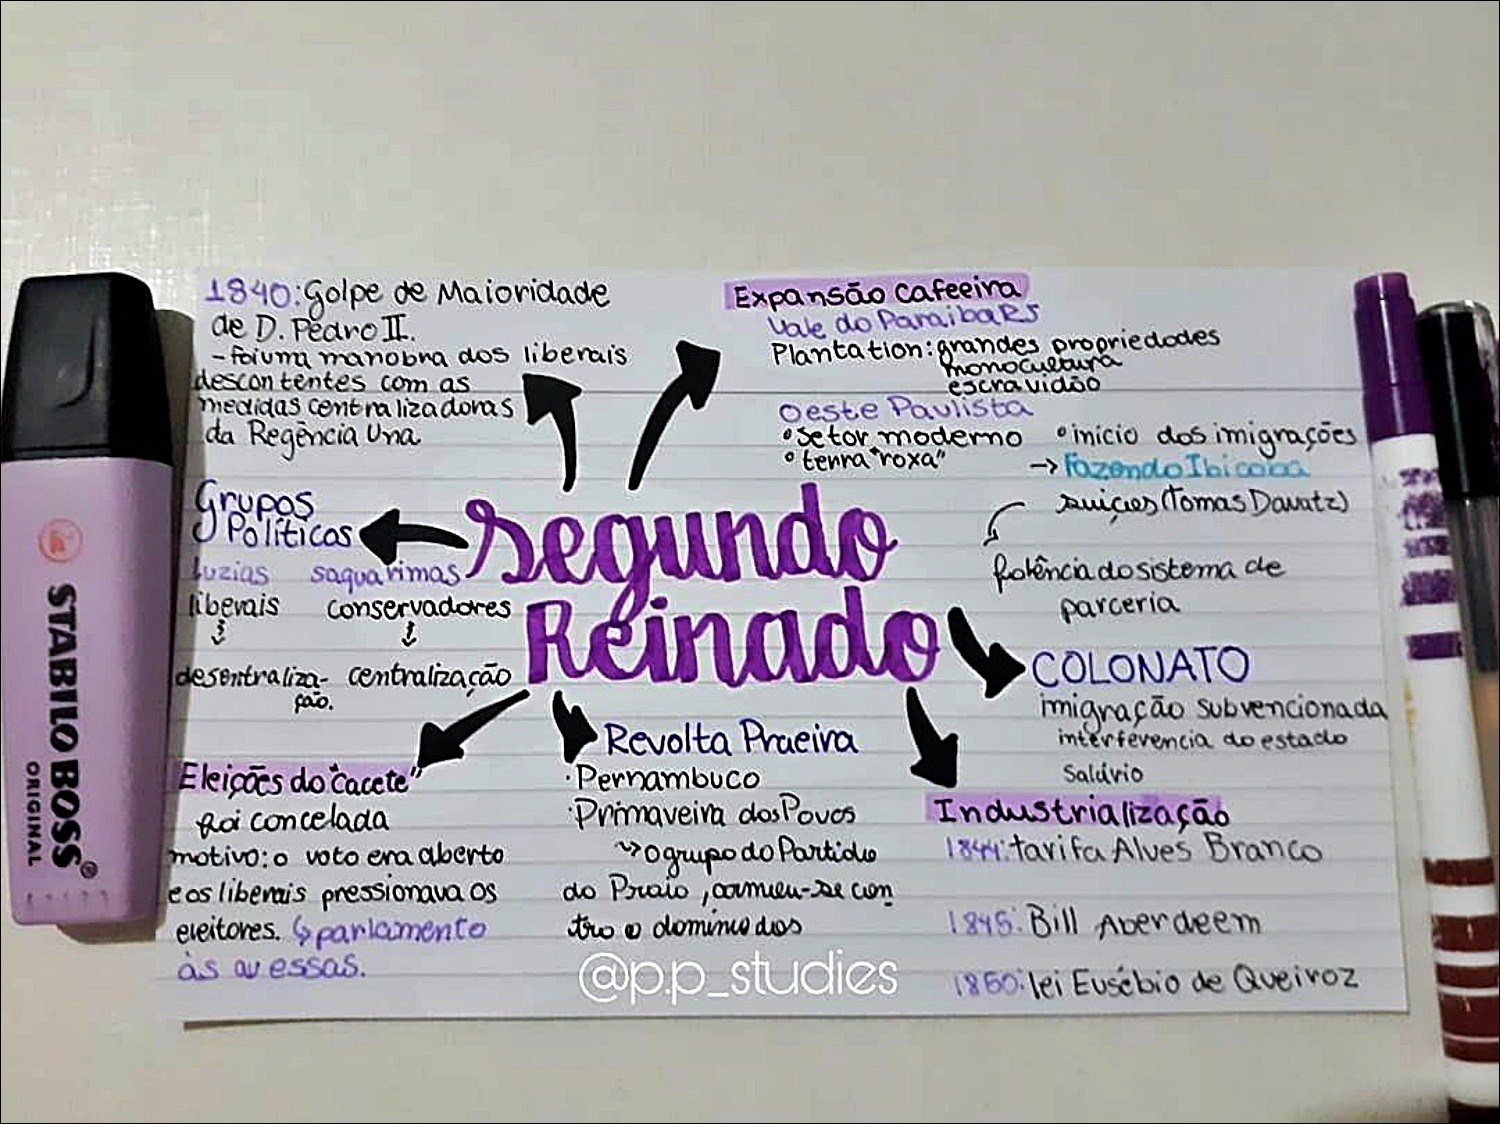 1840: Golpe de Maioridade
de D. Pedro II.
- foi uma manobra dos liberais
descontentes com as
medidas centralizadoras
da Regência Una
Expansão cafeeira
Vale do Paraiba RJ
Plantation: grandes propriedades
monocultura
escravidão
Oeste Paulista
• Setor moderno
• terra "roxa"
• inicio dos imigrações
→ Fazenda Ibicaba
suiços (Tomas Davatz)
falência do sistema de
parceria
Grupos
Políticos
luzias saquarimas
liberais conservadores
desentraliza- centralização
ção.
Segundo
Reinado
COLONATO
imigração subvencionada
interferencia do estado
Salário
Eleições do "cacete"
foi concelada
motivo: o voto era aberto
e os liberais pressionava os
eleitores. ↳ parlamento
às avessas.
Revolta Praeira
· Pernambuco
· Primaveira dos Povos
↪ o grupo do Partido
do Praia, armeu-se con
tra o dominio dos
Industrialização
1844: tarifa Alves Branco
1845: Bill Aberdeem
1850: lei Eusébio de Queiroz
@p.p_studies
STABILO BOSS®
ORIGINAL